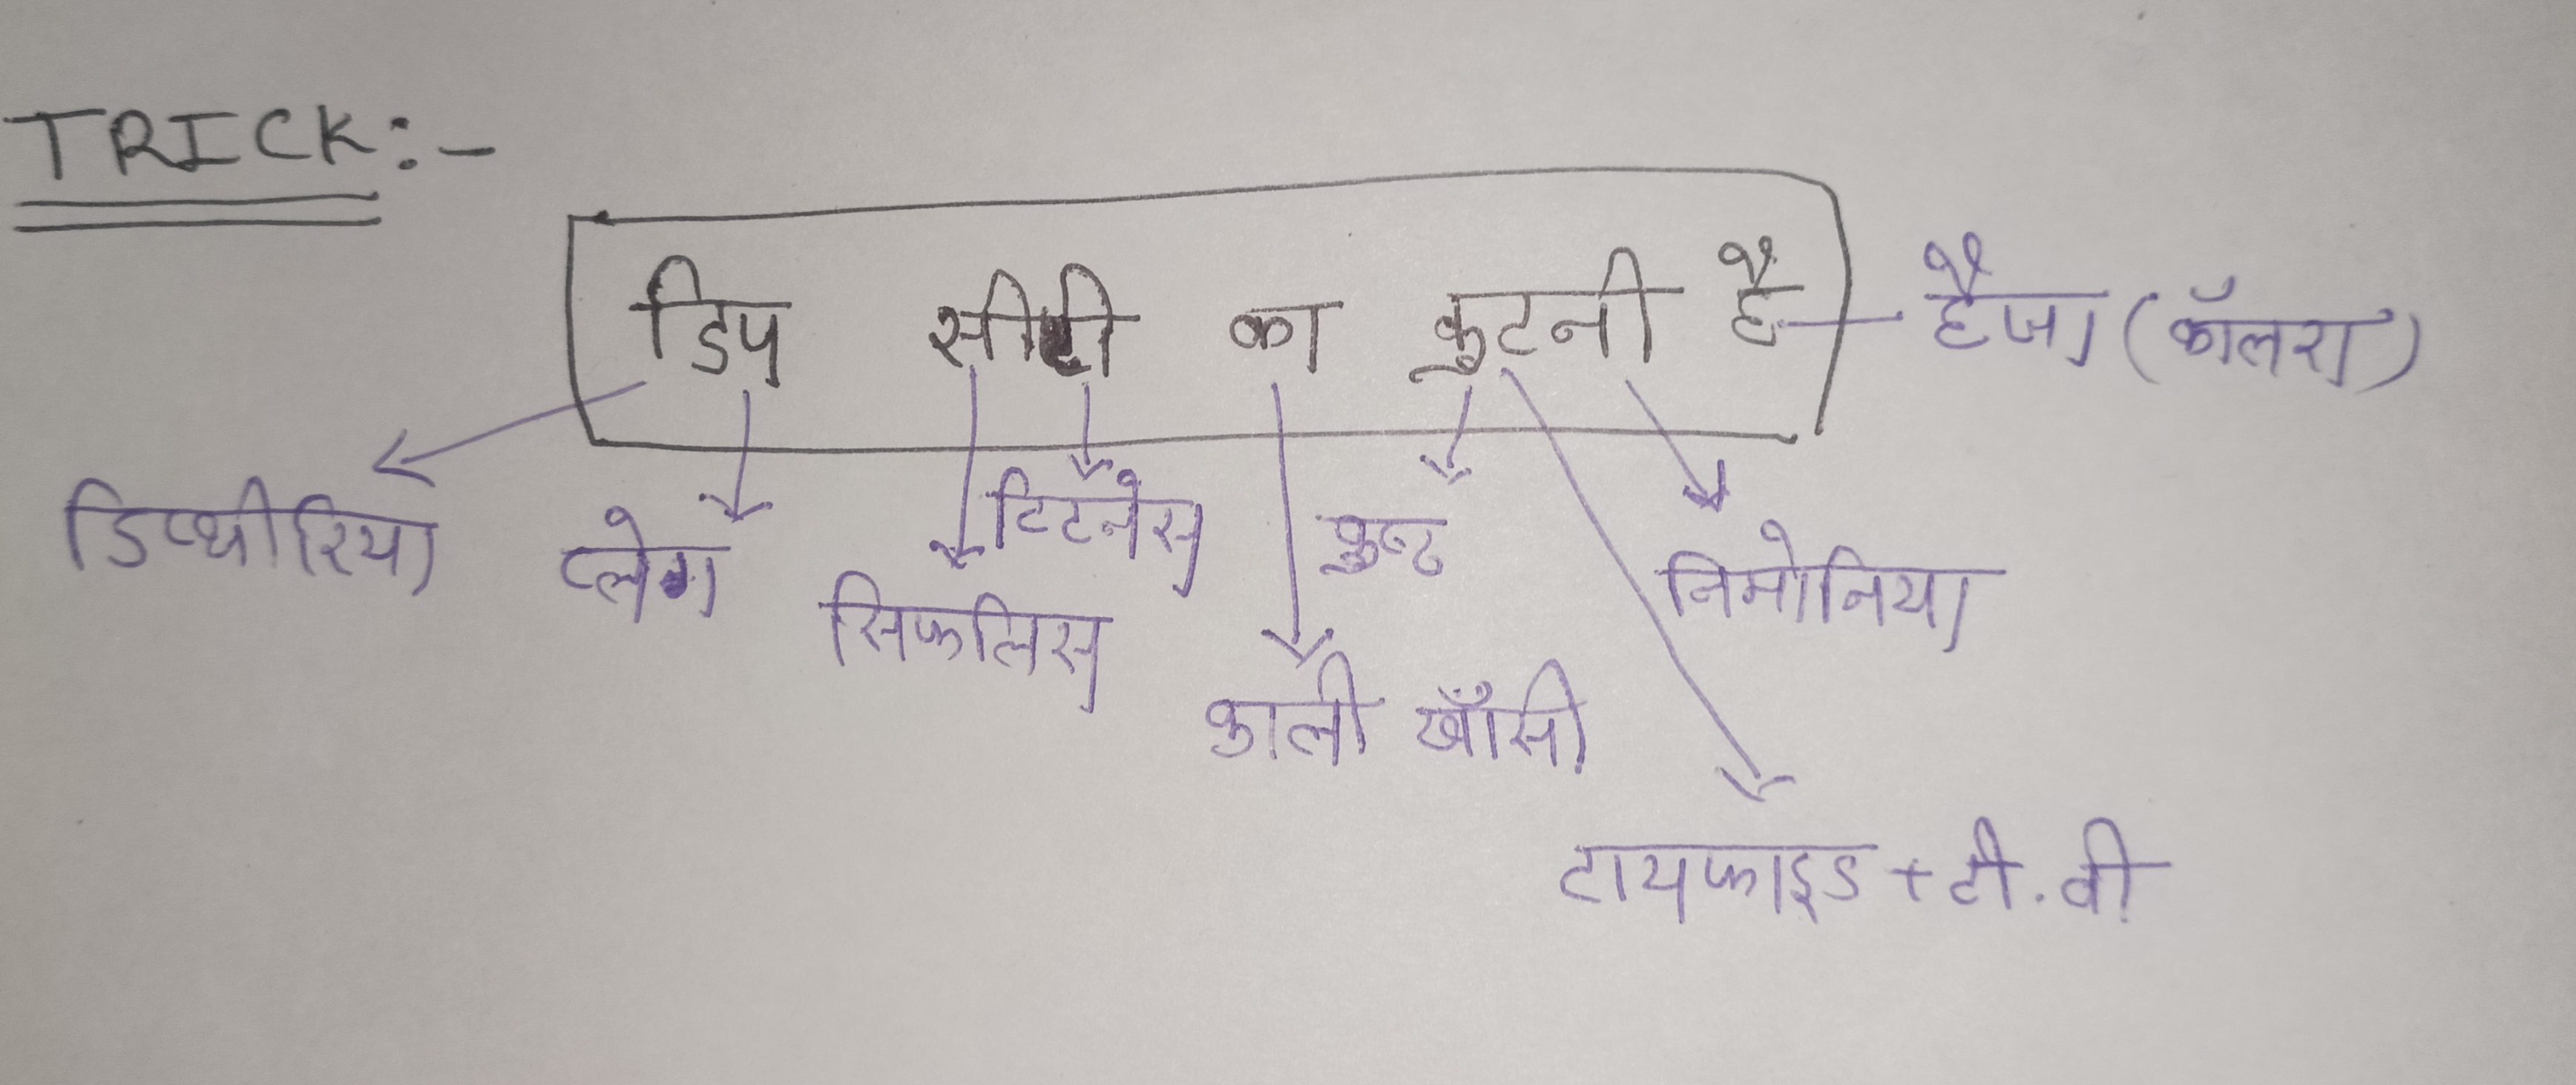 TRICK:-
डिप सीटी का कुटनी है हैजा (कॉलरा)
डिप्थीरिया प्लेग टिटनेस कुष्ट निमोनिया
सिफलिस
काली खाँसी
टायफाइड + टी.वी